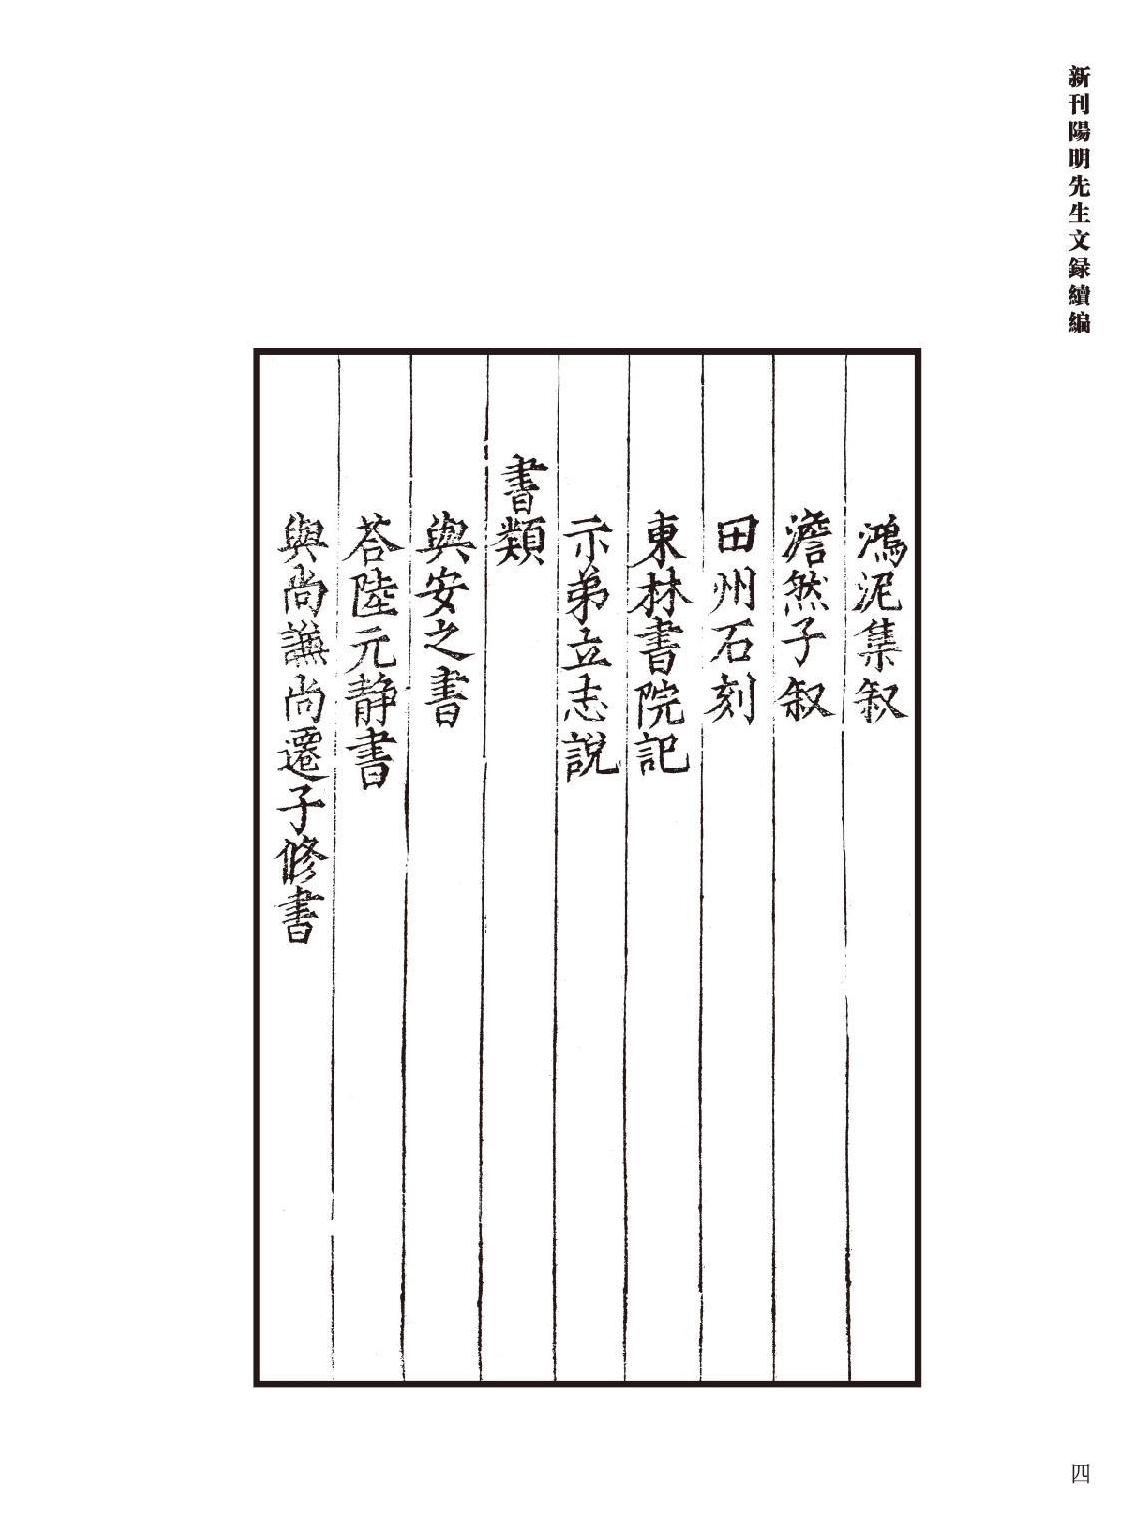 新刊陽明先生文録續編
鴻泥集叙
澹然子叙
田州石刻
東林書院記
示弟立志說
書類
與安之書
荅陸元靜書
與尚謙尚遷子修書
四